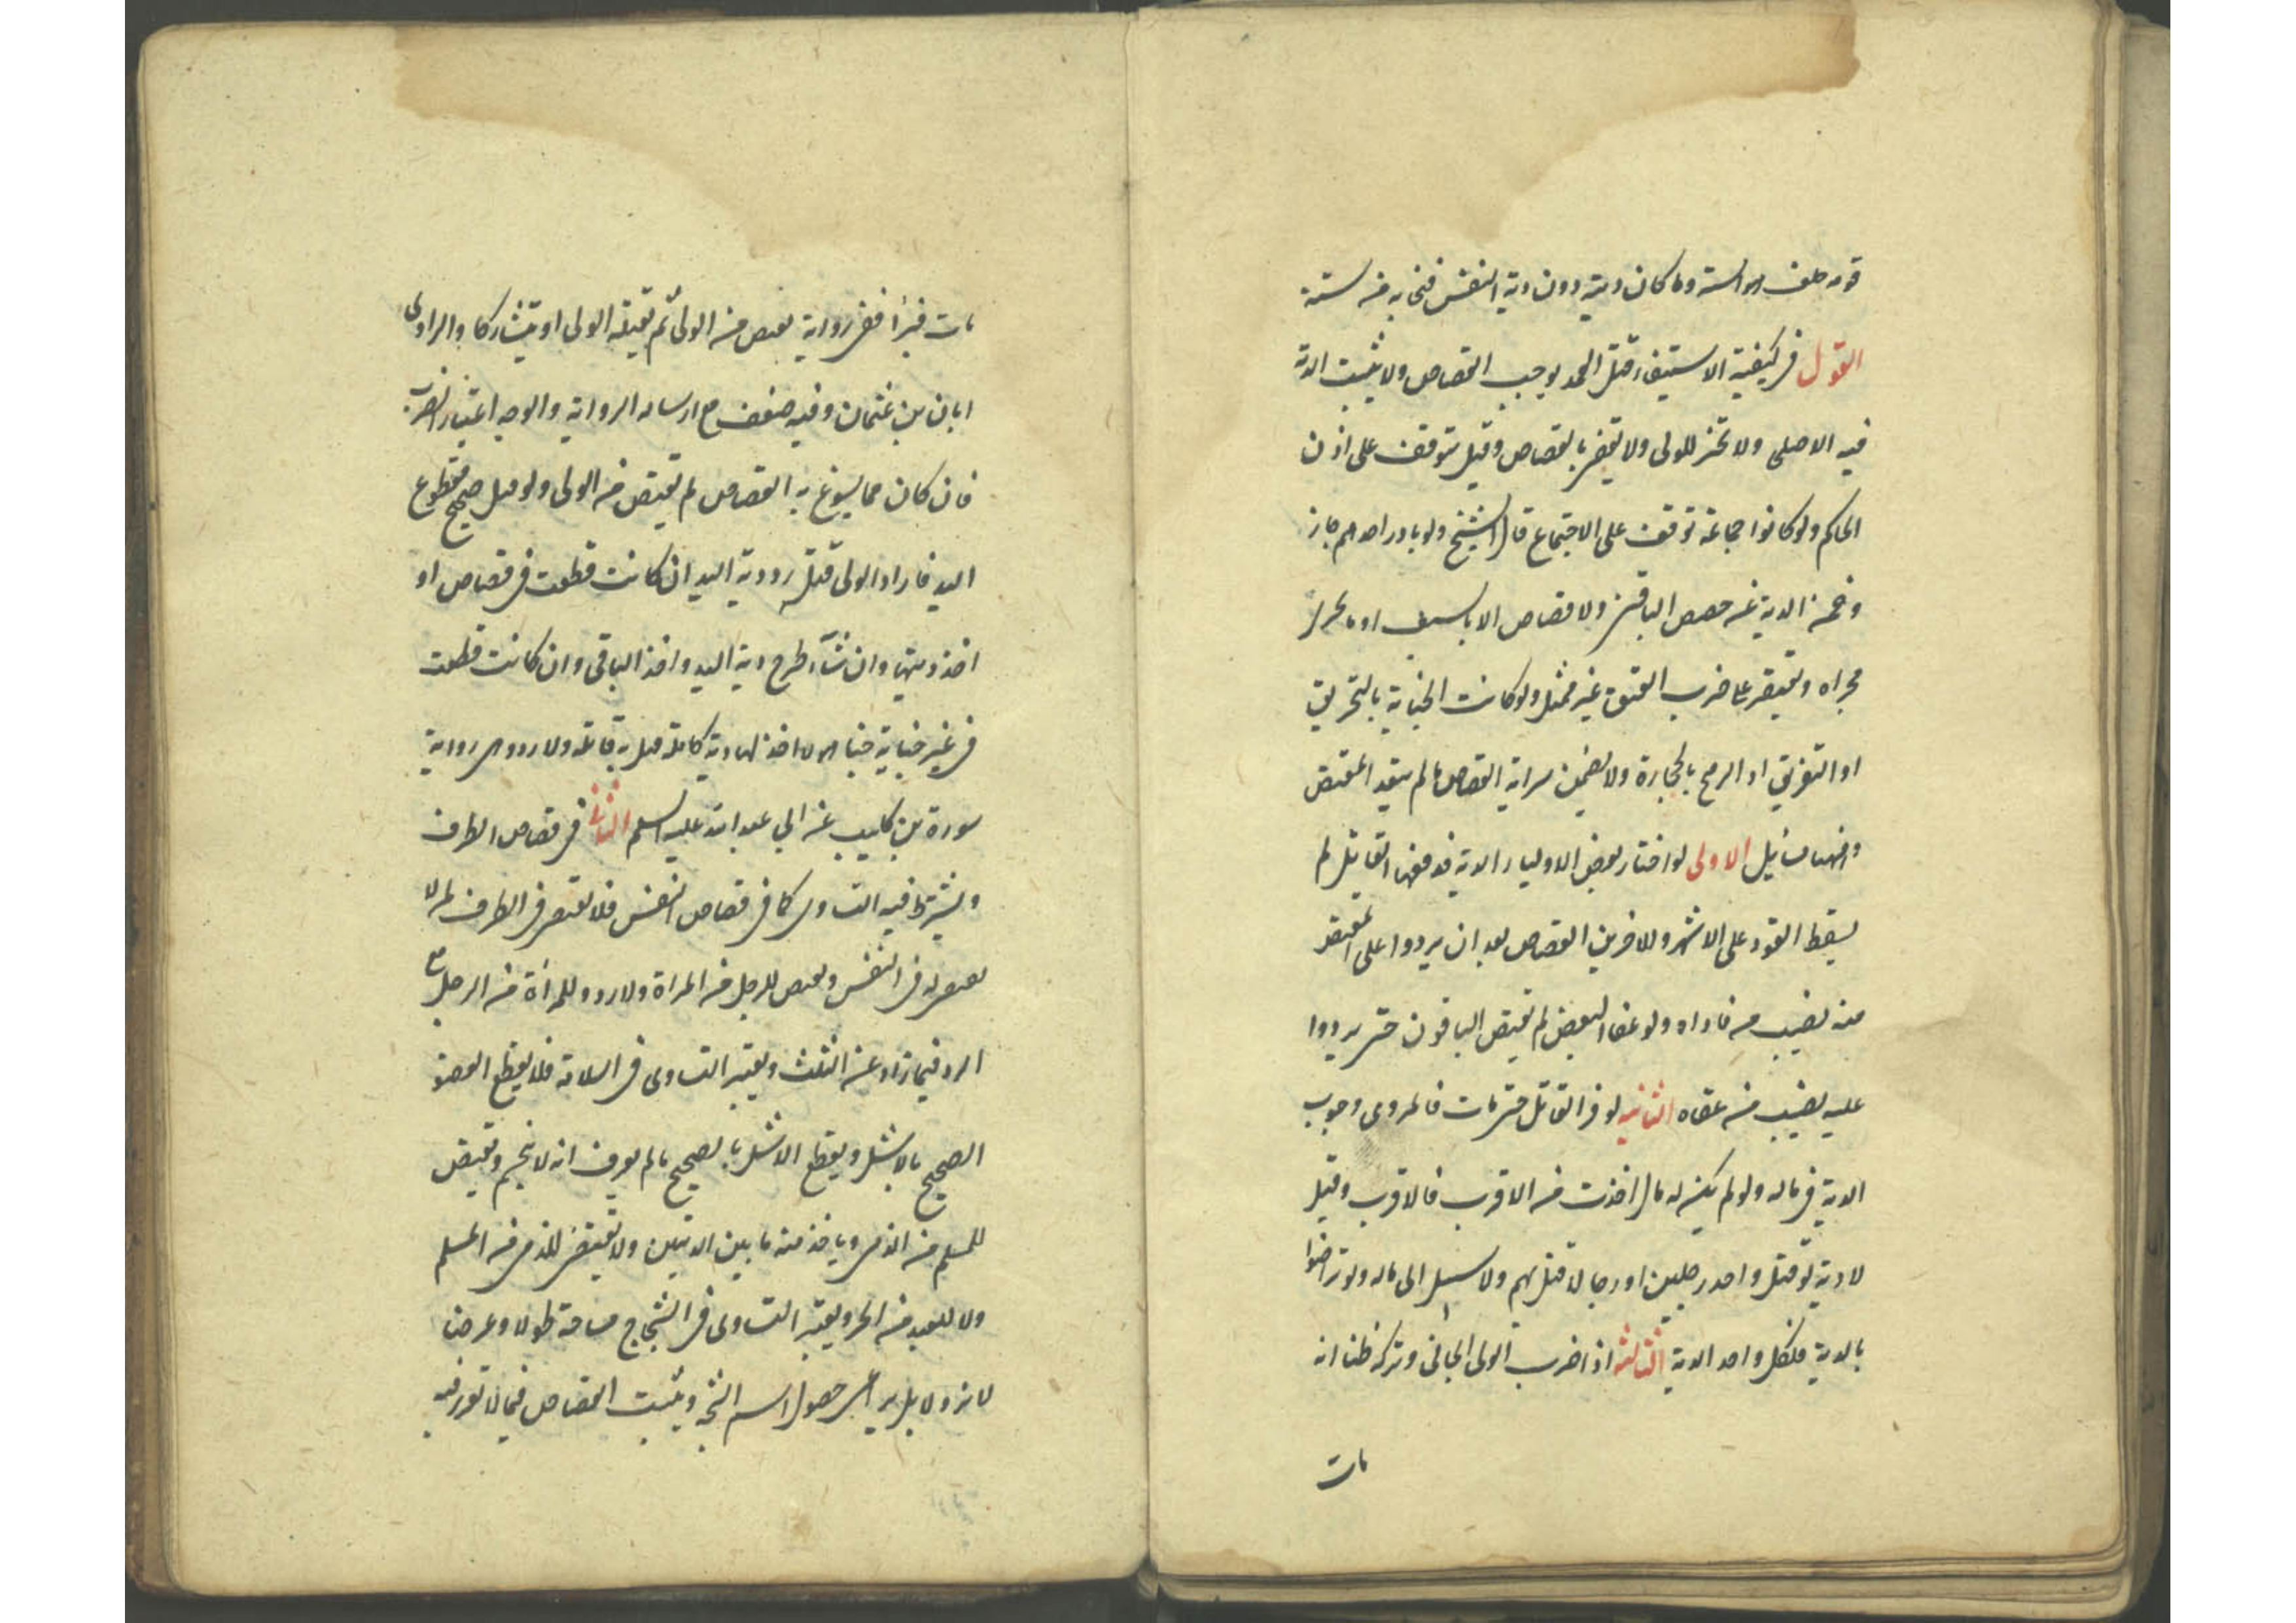 قومه حلف هو الستة وما كان ديته دون دية النفس فبحسابه من ستة
القول فى كيفية الاستيفاء قتل العمد يوجب القصاص ولا يثبت الدية
فيه الا صلحا ولا تخير للولى ولا يقضى بالقصاص وقيل يتوقف على اذن
الحاكم ولو كانوا جماعة توقف على الاجتماع قال الشيخ ولو بادر احدهم جاز
وضمن الدية عن حصص الباقين ولا قصاص الا بالسيف او ما جرى
مجراه ويقتصر على ضرب العنق غير ممثل ولو كانت الجناية بالتحريق
او التغريق او الرضح بالحجارة ولا يضمن سراية القصاص ما لم يتعد المقتص
وهنا مسايل الاولى لو اختار بعض الاولياء الدية فدفعها القاتل لم
يسقط القود على الاشهر وللاخرين القصاص بعد ان يردوا على المقتص
منه نصيب من فاداه ولو عفا البعض لم يقتص الباقون حتى يردوا
عليه نصيب من عفاه الثانية لو فر القاتل حتى مات فالمروى وجوب
الدية فى ماله ولو لم يكن له مال اخذت من الاقرب فالاقرب وقيل
لا دية لو قتل واحد رجلين او رجالا قتل بهم ولا سبيل الى ماله ولو تراضوا
بالدية فلكل واحد الدية الثالثة اذا ضرب الولى الجانى وتركه ظنا انه
مات
مات فبرأ ففى رواية يقتص من الولى ثم يقتله الولى او يتتاركا والراوى
ابان بن عثمان وفيه ضعف مع ارساله الرواية والوجه اعتبار الضرب
فان كان مما يسوغ به القصاص لم يقتص من الولى ولو قتل صحيح مقطوع
اليد فاراد الولى قتله رد دية اليد ان كانت قطعت فى قصاص او
اخذ ديتها وان شاء طرح دية اليد واخذ الباقى وان كانت قطعت
فى غير جناية جناها ولا اخذ لها دية كاملة قتل به قاتله ولا رد وهى رواية
سورة بن كليب عن ابي عبد الله عليه السلم الثانى فى قصاص الطرف
ويشترط فيه التساوى كما فى قصاص النفس فلا يقتص فى الطرف لمن لا
يقتص له فى النفس ويقتص للرجل من المراة ولا رد وللمراة من الرجل مع
الرد فيما زاد عن الثلث ويعتبر التساوى فى السلامة فلا يقطع العضو
الصحيح بالاشل ويقطع الاشل بالصحيح ما لم يعرف انه لا ينحسم ويقتص
للمسلم من الذمى وياخذ منه ما بين الديتين ولا يقتص للذمى من المسلم
ولا للعبد من الحر ويعتبر التساوى فى الشجاج مساحة طولا وعرضا
لا نزولا بل يراعى حصول اسم الشجة ويثبت القصاص فيما لا تغرير فيه